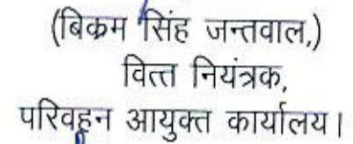 (बिक्रम सिंह जन्तवाल,)
वित्त नियंत्रक,
परिवहन आयुक्त कार्यालय।